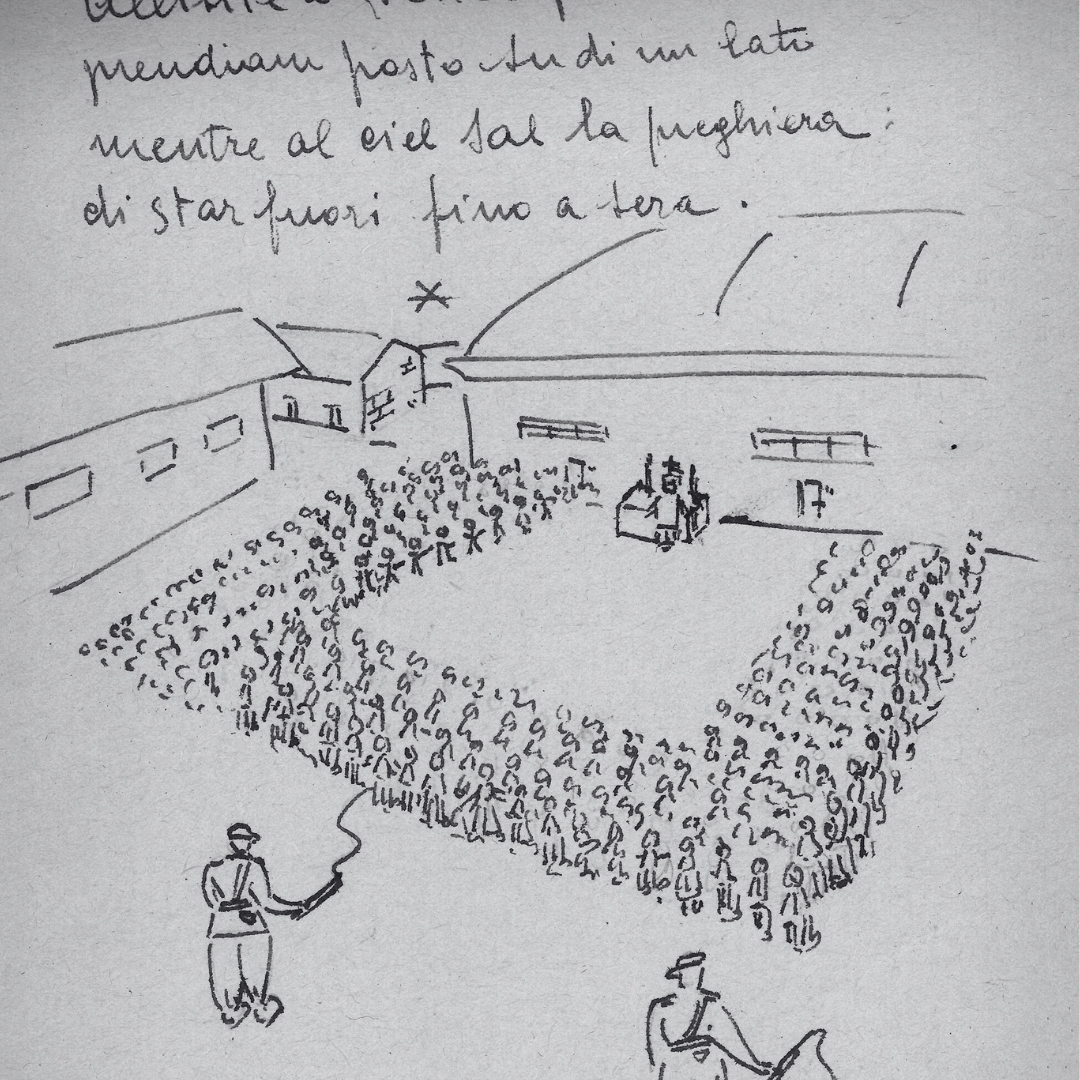 prendiam posto su di un lato
mentre al ciel sal la preghiera:
di star fuori fino a sera.
17